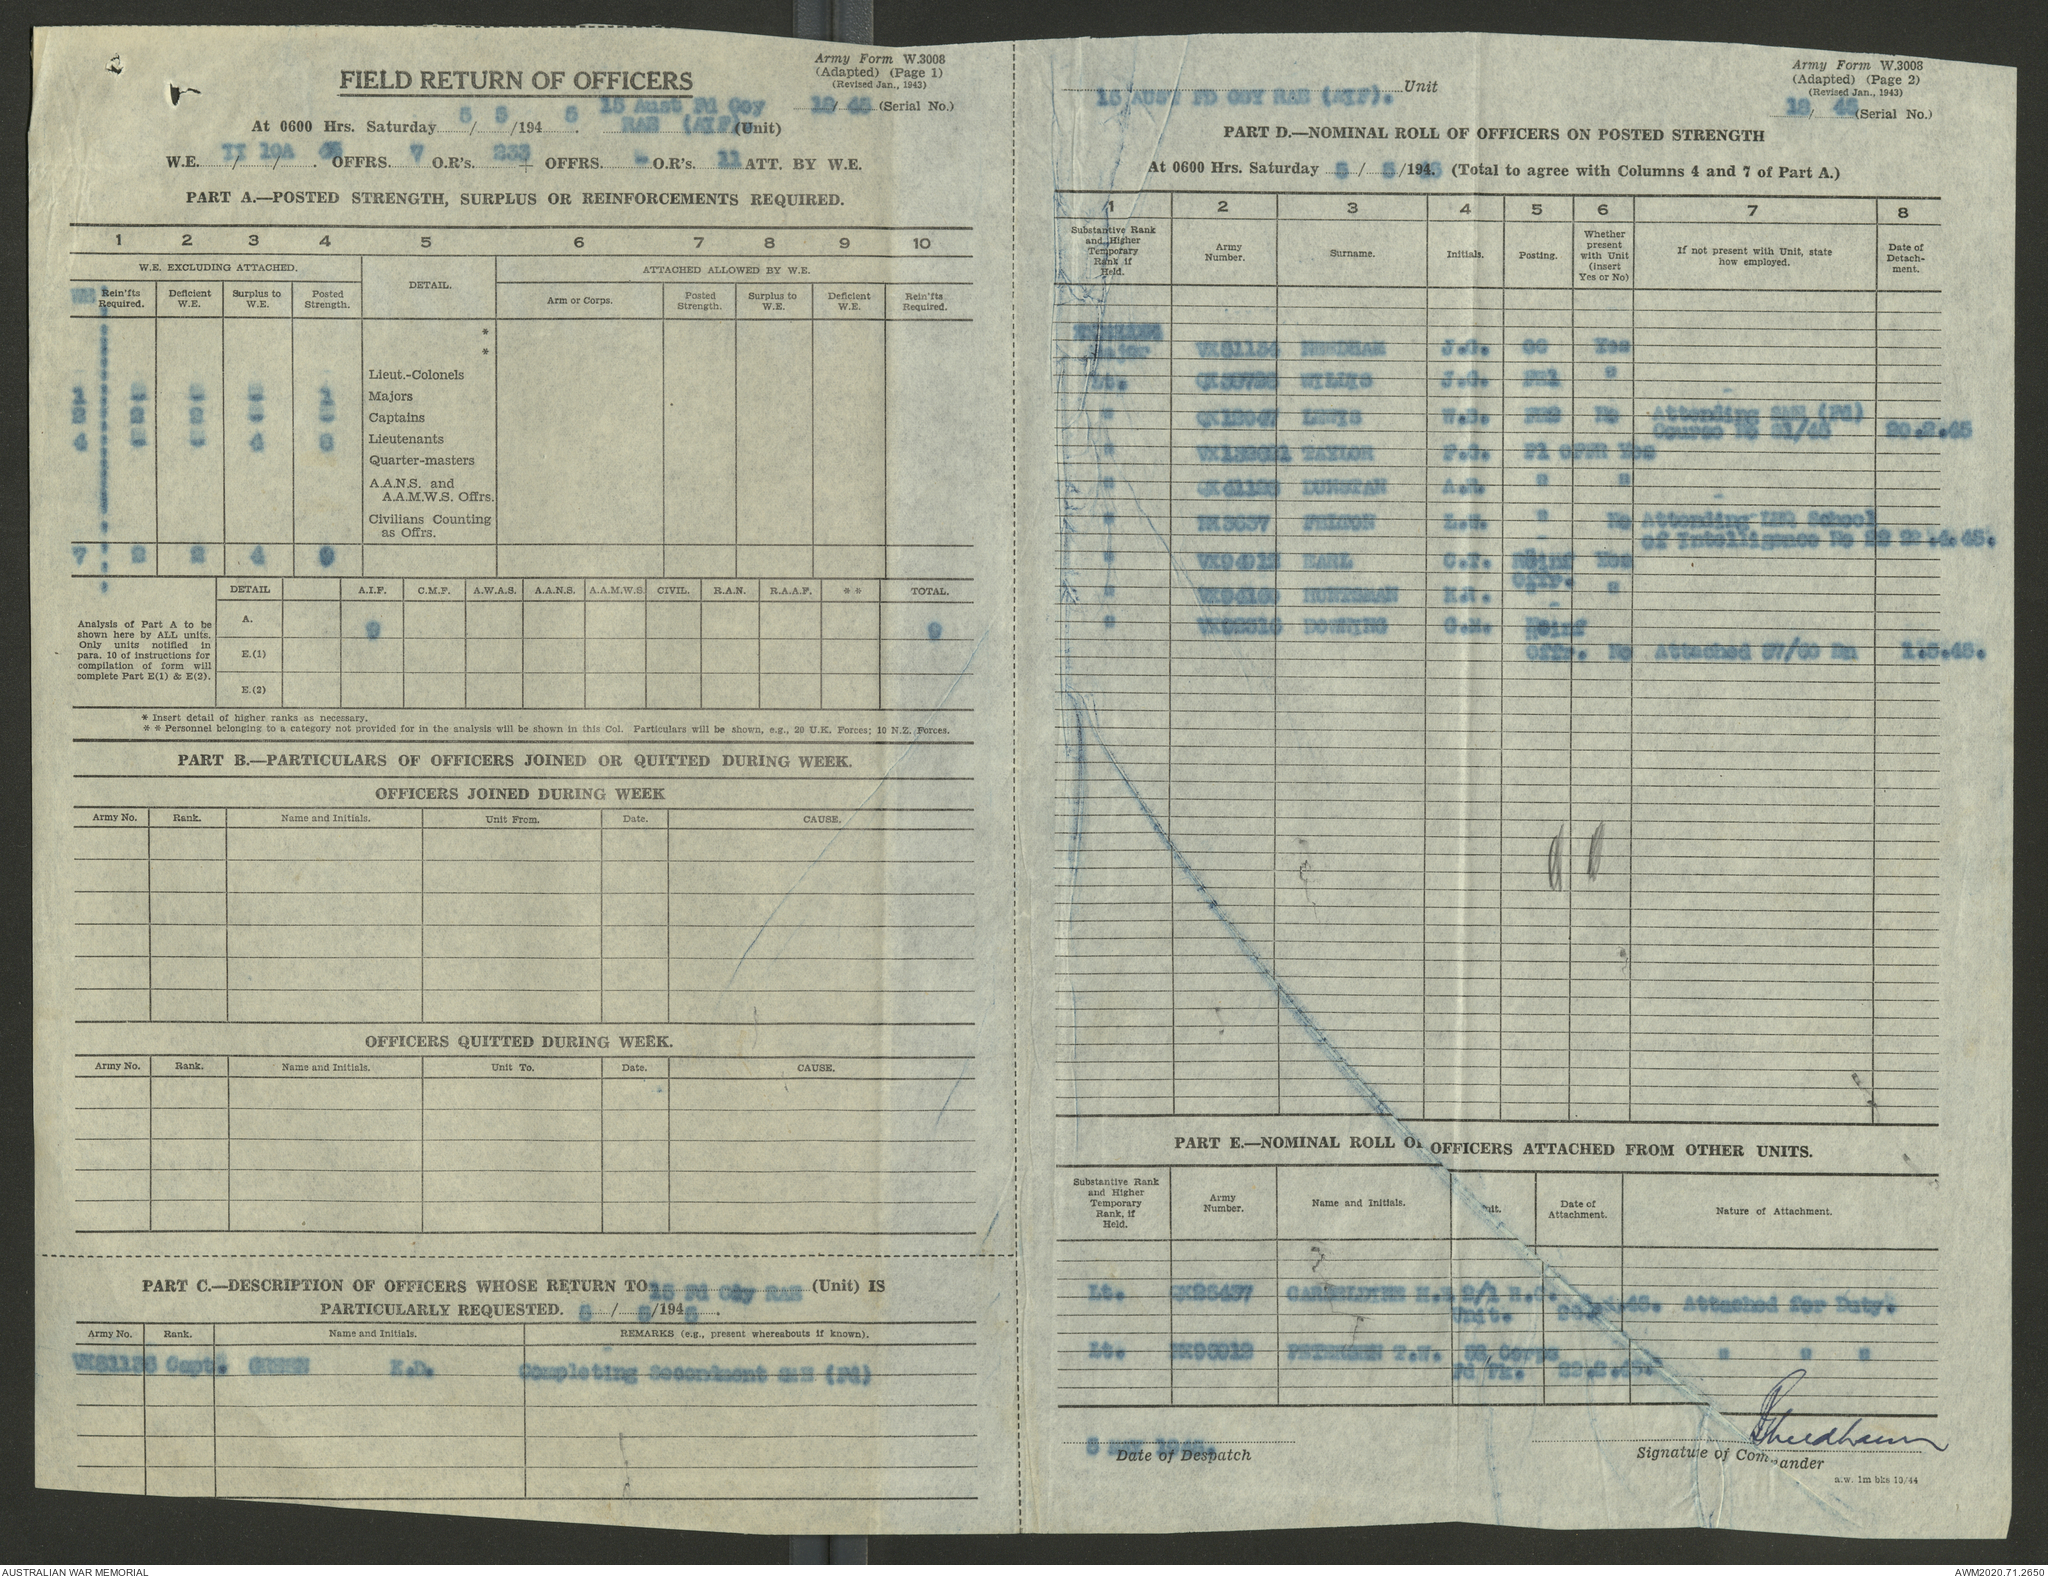 Army Form W.3008
(Adapted) (Page 1)
(Revised Jan., 1943)
FIELD RETURN OF OFFICERS
18/ 45 (Serial No.)
At 0600 Hrs. Saturday 5 / 5 /194 5. 15 Aust Fd Coy
RAE (AIF) (Unit)
W.E. II / 10A / OFFRS. 7 O.R's. 233 + OFFRS. - O.R's. 11 ATT. BY W.E.
PART A.—POSTED STRENGTH, SURPLUS OR REINFORCEMENTS REQUIRED.
1 2 3 4 5 6 7 8 9 10
W.E. EXCLUDING ATTACHED. DETAIL. ATTACHED ALLOWED BY W.E.
WE Rein'fts Required. Deficient W.E. Surplus to W.E. Posted Strength. Arm or Corps. Posted Strength. Surplus to W.E. Deficient W.E. Rein'fts Required.
*
*
Lieut.-Colonels
1 - - - 1 Majors
2 2 2 - - Captains
4 - - 4 8 Lieutenants
Quarter-masters
A.A.N.S. and
A.A.M.W.S. Offrs.
Civilians Counting
as Offrs.
7 2 2 4 9
DETAIL A.I.F. C.M.F. A.W.A.S. A.A.N.S. A.A.M.W.S. CIVIL. R.A.N. R.A.A.F. * * TOTAL.
Analysis of Part A to be
shown here by ALL units.
Only units notified in
para. 10 of instructions for
compilation of form will
complete Part E(1) & E(2).
A. 9 9
E.(1)
E.(2)
* Insert detail of higher ranks as necessary.
* * Personnel belonging to a category not provided for in the analysis will be shown in this Col. Particulars will be shown, e.g., 20 U.K. Forces; 10 N.Z. Forces.
PART B.—PARTICULARS OF OFFICERS JOINED OR QUITTED DURING WEEK.
OFFICERS JOINED DURING WEEK
Army No. Rank. Name and Initials. Unit From. Date. CAUSE.
OFFICERS QUITTED DURING WEEK.
Army No. Rank. Name and Initials. Unit To. Date. CAUSE.
PART C.—DESCRIPTION OF OFFICERS WHOSE RETURN TO 15 Fd Coy RAE (Unit) IS
PARTICULARLY REQUESTED. 5 / 5 /194 5.
Army No. Rank. Name and Initials. REMARKS (e.g., present whereabouts if known).
Capt. GREEN K.D. Completing Secondment SME (Fd)
Army Form W.3008
(Adapted) (Page 2)
(Revised Jan., 1943)
15 AUST FD COY RAE (AIF). Unit
18/ 45 (Serial No.)
PART D.—NOMINAL ROLL OF OFFICERS ON POSTED STRENGTH
At 0600 Hrs. Saturday 5 / 5 /194 5 (Total to agree with Columns 4 and 7 of Part A.)
1 2 3 4 5 6 7 8
Substantive Rank and Higher Temporary Rank if Held. Army Number. Surname. Initials. Posting. Whether present with Unit (insert Yes or No) If not present with Unit, state how employed. Date of Detachment.
Major VX81134 NEEDHAM J.G. OC Yes
Lt. WILLIS J.G. "
" LEWIS W.S. No Attending SME (Fd)
Course No 20.2.45
" TAYLOR F.G. Pl OFFR Yes
" DUNSTAN A.R. " "
" FELTON L.H. " No Attending LHQ School
of Intelligence No 22 22.4.45.
" EARL C.F. Reinf Yes
Offr.
" HUNTSMAN " "
" DOWNING G.M. Reinf
Offr. No Attached 57/60 Bn 1.5.45.
PART E.—NOMINAL ROLL OF OFFICERS ATTACHED FROM OTHER UNITS.
Substantive Rank and Higher Temporary Rank, if Held. Army Number. Name and Initials. Unit. Date of Attachment. Nature of Attachment.
Lt. 2/1 Attached for Duty.
Unit.
Lt. PETERSEN T.W. Corps " " "
Fd Pk. 22.2.45.
5 May 1945.
Date of Despatch
JGNeedham
Signature of Commander
a.w. 1m bks 10/44
AUSTRALIAN WAR MEMORIAL
AWM2020.71.2650